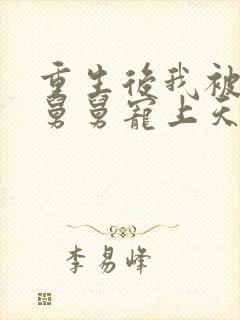 重生後我被
舅舅寵上天
李易峰